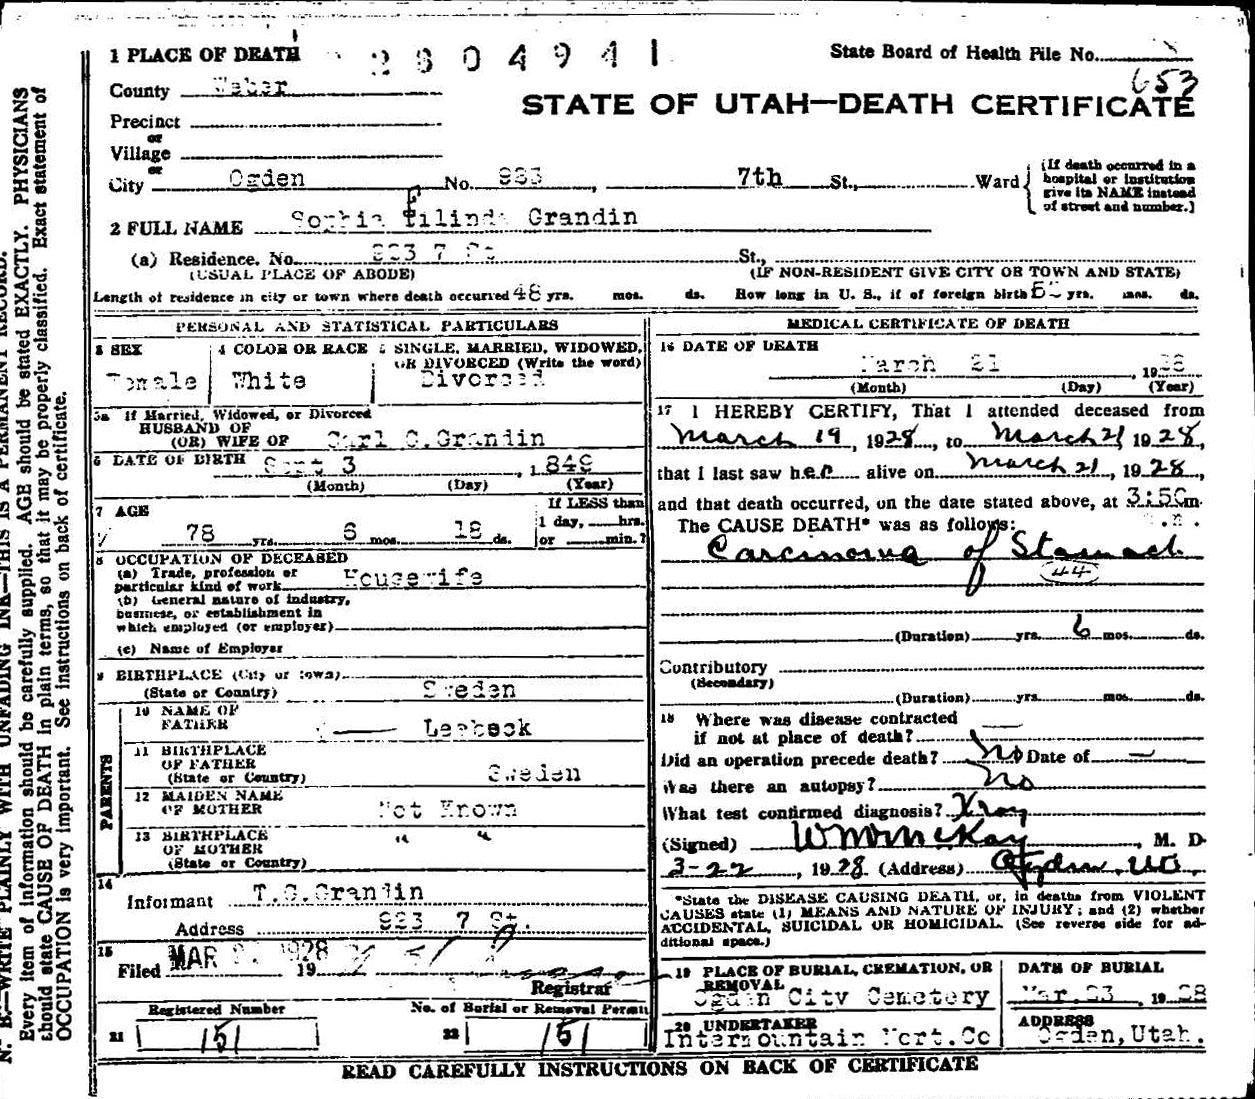 1 PLACE OF DEATH 2804941 State Board of Health File No.
653
County Weber
STATE OF UTAH—DEATH CERTIFICATE
Precinct
or
Village
or
City Ogden No. 923, 7th St., Ward
(If death occurred in a
hospital or institution
give its NAME instead
of street and number.)
2 FULL NAME Sophia Filinda Grandin
(a) Residence. No. 923 7 St St.,
(USUAL PLACE OF ABODE) (IF NON-RESIDENT GIVE CITY OR TOWN AND STATE)
Length of residence in city or town where death occurred 48 yrs. mos. ds. How long in U. S., if of foreign birth yrs. mos. ds.
PERSONAL AND STATISTICAL PARTICULARS
3 SEX
Female
4 COLOR OR RACE
White
5 SINGLE, MARRIED, WIDOWED,
OR DIVORCED (Write the word)
Divorced
5a If Married, Widowed, or Divorced
HUSBAND OF
(OR) WIFE OF Carl C.Grandin
6 DATE OF BIRTH Sept 3, 1849
(Month) (Day) (Year)
7 AGE
78 yrs. 6 mos. 18 ds.
If LESS than
1 day, hrs.
or min.?
8 OCCUPATION OF DECEASED
(a) Trade, profession or
particular kind of work Housewife
(b) General nature of industry,
business, or establishment in
which employed (or employer)
(c) Name of Employer
9 BIRTHPLACE (City or town)
(State or Country) Sweden
PARENTS
10 NAME OF
FATHER — Leebeck
11 BIRTHPLACE
OF FATHER
(State or Country) Sweden
12 MAIDEN NAME
OF MOTHER Not Known
13 BIRTHPLACE
OF MOTHER " "
(State or Country)
14
Informant T.G.Grandin
Address 923 7 St.
15
Filed MAR 1928 19
Registrar
Registered Number No. of Burial or Removal Permit
21 151 22 151
MEDICAL CERTIFICATE OF DEATH
16 DATE OF DEATH
March 21, 1928
(Month) (Day) (Year)
17 I HEREBY CERTIFY, That I attended deceased from
March 19, 1928, to March 21 1928,
that I last saw her alive on March 21, 1928,
and that death occurred, on the date stated above, at 3:50 m.
The CAUSE DEATH* was as follows:
Carcinoma of Stomach
44
(Duration) yrs. 6 mos. ds.
Contributory
(Secondary)
(Duration) yrs. mos. ds.
18 Where was disease contracted
if not at place of death?
Did an operation precede death? No Date of —
Was there an autopsy? No
What test confirmed diagnosis? Xray
(Signed) W M McKay, M. D.
3-22, 1928 (Address) Ogden, Ut.
*State the DISEASE CAUSING DEATH, or, in deaths from VIOLENT
CAUSES state (1) MEANS AND NATURE OF INJURY; and (2) whether
ACCIDENTAL, SUICIDAL OR HOMICIDAL. (See reverse side for ad-
ditional space.)
19 PLACE OF BURIAL, CREMATION, OR
REMOVAL
Ogden City Cemetery
DATE OF BURIAL
Mar.23, 1928
20 UNDERTAKER
Intermountain Mort.Co
ADDRESS
Ogden, Utah.
READ CAREFULLY INSTRUCTIONS ON BACK OF CERTIFICATE
N. B.—WRITE PLAINLY WITH UNFADING INK—THIS IS A PERMANENT RECORD.
Every item of information should be carefully supplied. AGE should be stated EXACTLY. PHYSICIANS
should state CAUSE OF DEATH in plain terms, so that it may be properly classified. Exact statement of
OCCUPATION is very important. See instructions on back of certificate.